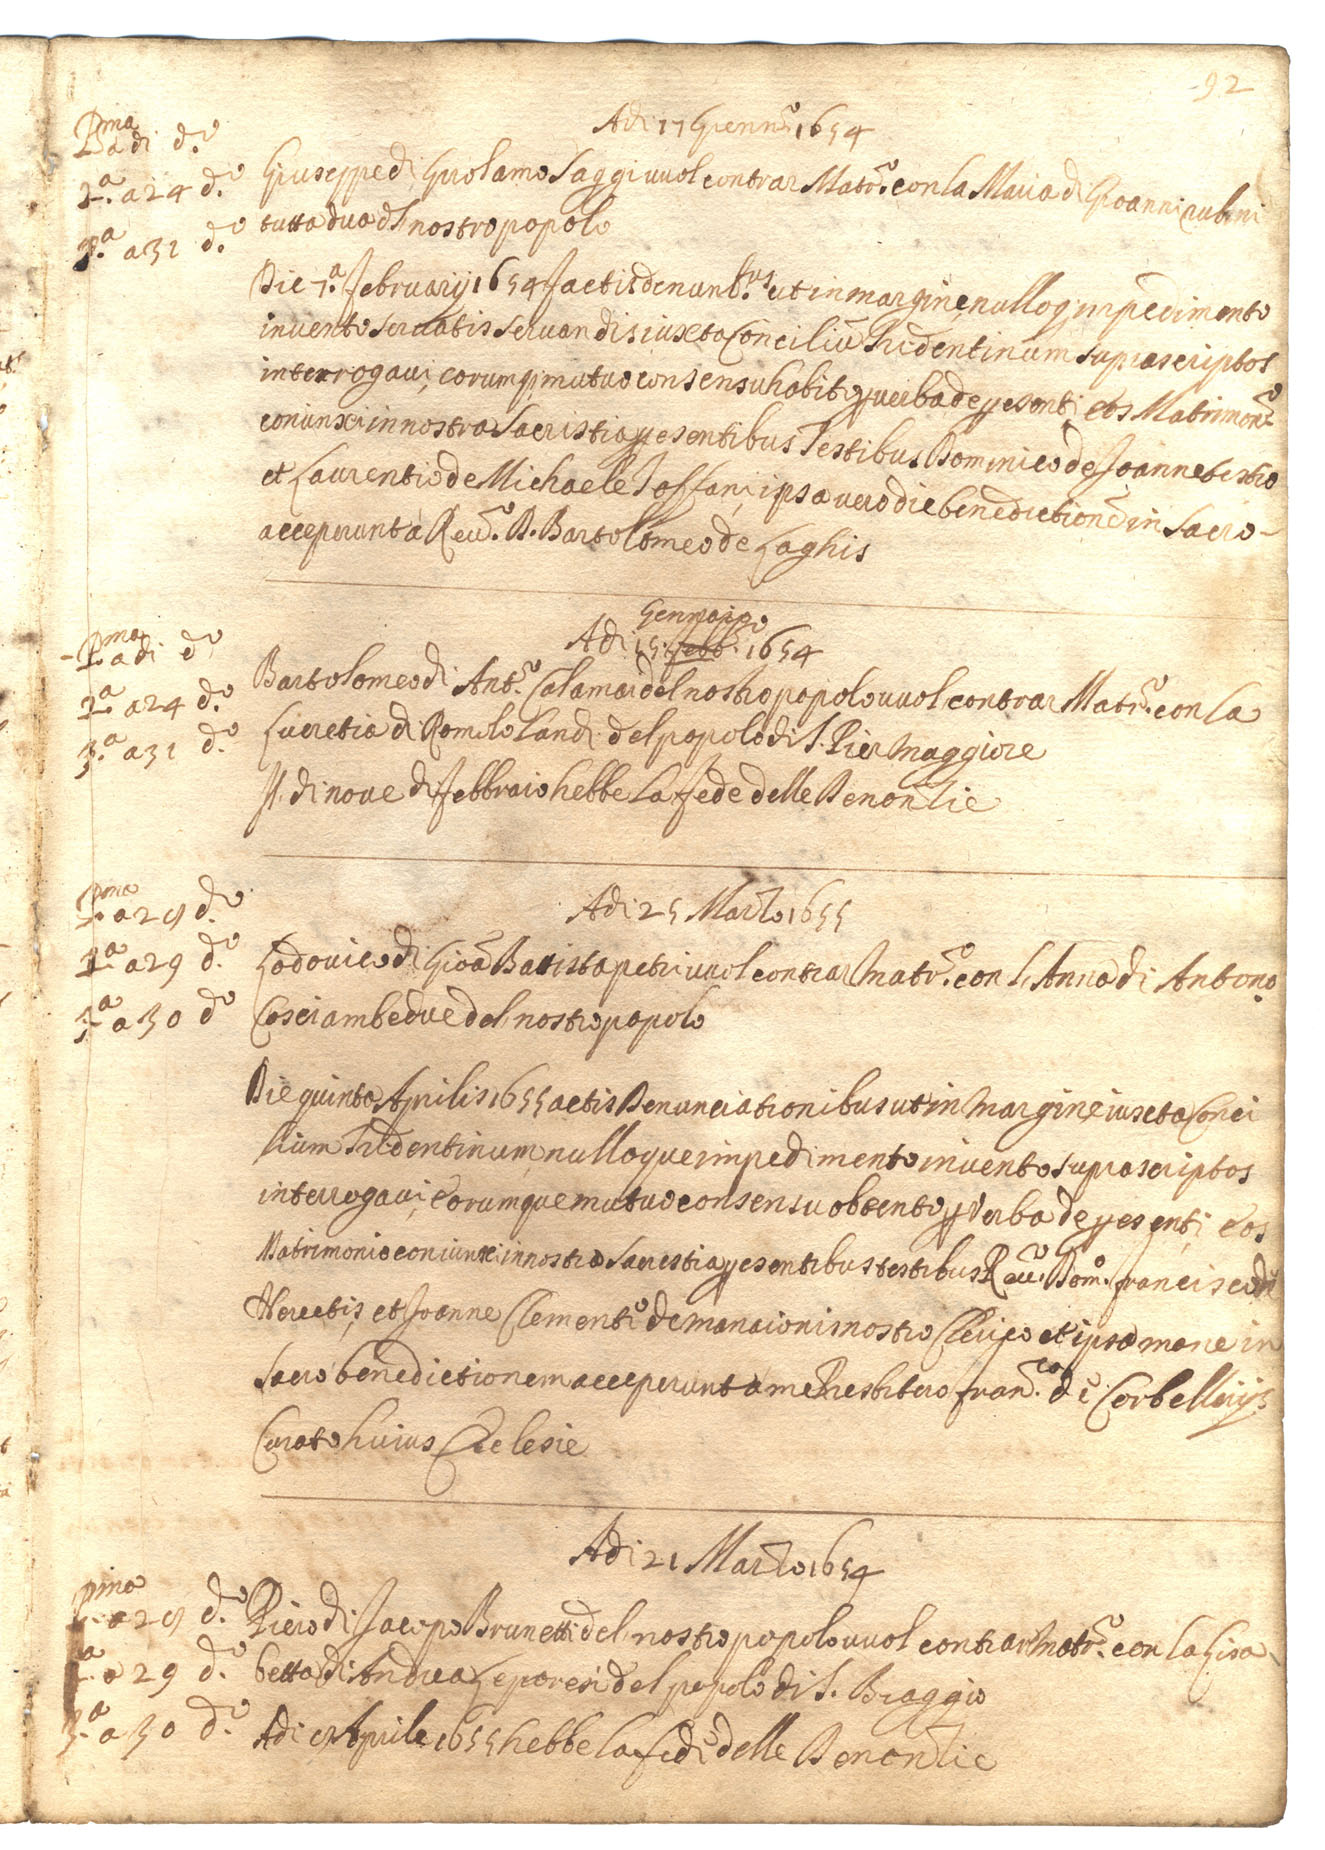 92
Adi 17 Genn.o 1654
P.ma adi d.o
2.a a 24 d.o
3.a a 31 d.o
Giuseppe di Girolamo Saggi vuol contrar Matr.o con la Maria di Gioanni rubini
tutta dua del nostro popolo
Die 7.a February 1654 factis denunt.bus ut in margine nulloq impedimento
invento servatis servandis iuxta Conciliũ Tridentinum suprascriptos
interrogavi, eorumq; mutuo consensu habito p verba de pesenti eos Matrimon.o
coniunxi in nostra Sacristia pesentibus Testibus Dominico de Joanne
et Laurentio de Michaele Toffani, ipsa vero die benedictionẽ in Sacro
acceperunt a Reu.o D. Bartolomeo de Laghis
Gennaio
Adi 15 febb. 1654
P.ma adi d.o
2.a a 24 d.o
3.a a 31 d.o
Bartolomeo di Ant.o Calamai del nostro popolo vuol contrar Matr.o con la
Lucretia di Romolo Landi del popolo di S. Pier Maggiore
di nove di febbraio hebbe la fede delle Denontie
Adi 25 Marzo 1655
P.ma a 28 d.o
2.a a 29 d.o
3.a a 30 d.o
Lodovico di Gioã Batista petri vuol contrar Matr.o con l'Anna di Antonio
Cosci ambedue del nostro popolo
Die quinta Aprilis 1655 actis Denunciationibus ut in margine iuxta Conci
lium Tridentinum, nulloque impedimento invento suprascriptos
interrogavi, eorumque mutuo consensu obtento p verba de pesenti, eos
Matrimonio coniunxi in nostra Sacrestia pesentibus testibus R. Dom. francisco de
et Joanne Clementi de nostro Clerico et ipsa mane in
Sacro benedictionem acceperunt a me Presbitero fran.co de Corbellinijs
Curato huius Ecclesie
Adi 21 Marzo 1654
p.ma a 28 d.o
2.a a 29 d.o
3.a a 30 d.o
Piero di Jacopo Brunetti del nostro popolo vuol contrar Matr.o con la Lisa
betta di Andrea Leporesi del popolo di S. Biaggio
Adi 8 Aprile 1655 hebbe la fede delle Denontie